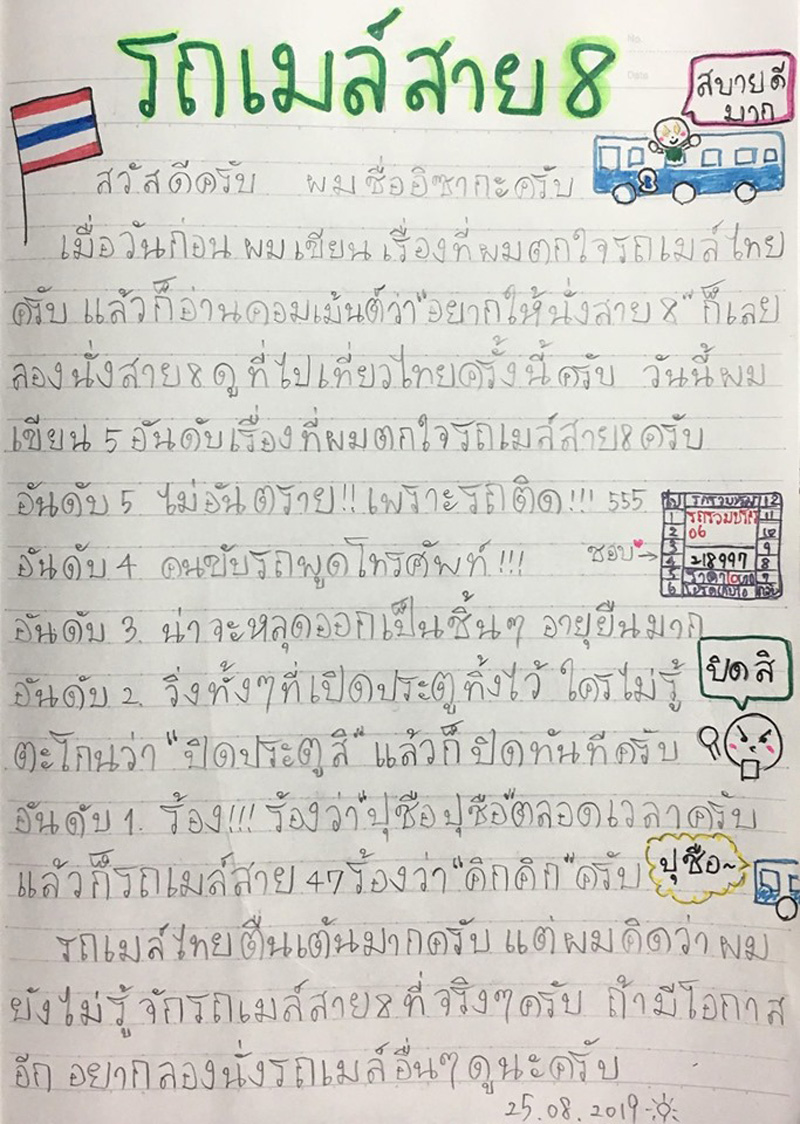 รถเมล์สาย 8
สบายดี
มาก
8
สวัสดีครับ ผมชื่ออิซากะครับ
เมื่อวันก่อน ผมเขียน เรื่องที่ผมตกใจรถเมล์ไทย
ครับ แล้วก็อ่านคอมเม้นต์ว่า "อยากให้นั่งสาย 8" ก็เลย
ลองนั่งสาย 8 ดู ที่ไปเที่ยวไทยครั้งนี้ครับ วันนี้ผม
เขียน 5 อันดับเรื่องที่ผมตกใจรถเมล์สาย 8 ครับ
อันดับ 5 ไม่อันตราย!! เพราะรถติด!!! 555
อันดับ 4 คนขับรถพูดโทรศัพท์!!!
ชอบ
1
2
3
4
5
6
06
218997
ราคา
12
11
10
9
8
7
อันดับ 3. น่าจะหลุดออกเป็นชิ้นๆ อายุยืนมาก
อันดับ 2. วิ่งทั้งๆที่เปิดประตูทิ้งไว้ ใครไม่รู้
ปิดสิ
ตะโกนว่า "ปิดประตูสิ" แล้วก็ปิดทันทีครับ
อันดับ 1. ร้อง!!! ร้องว่า "ปุชือปุชือ" ตลอดเวลาครับ
แล้วก็รถเมล์สาย 47 ร้องว่า "คิกคิก" ครับ
ปุชือ~
รถเมล์ไทยตื่นเต้นมากครับ แต่ผมคิดว่า ผม
ยังไม่รู้จักรถเมล์สาย 8 ที่จริงๆครับ ถ้ามีโอกาส
อีก อยากลองนั่งรถเมล์อื่นๆดูนะครับ
25.08.2019